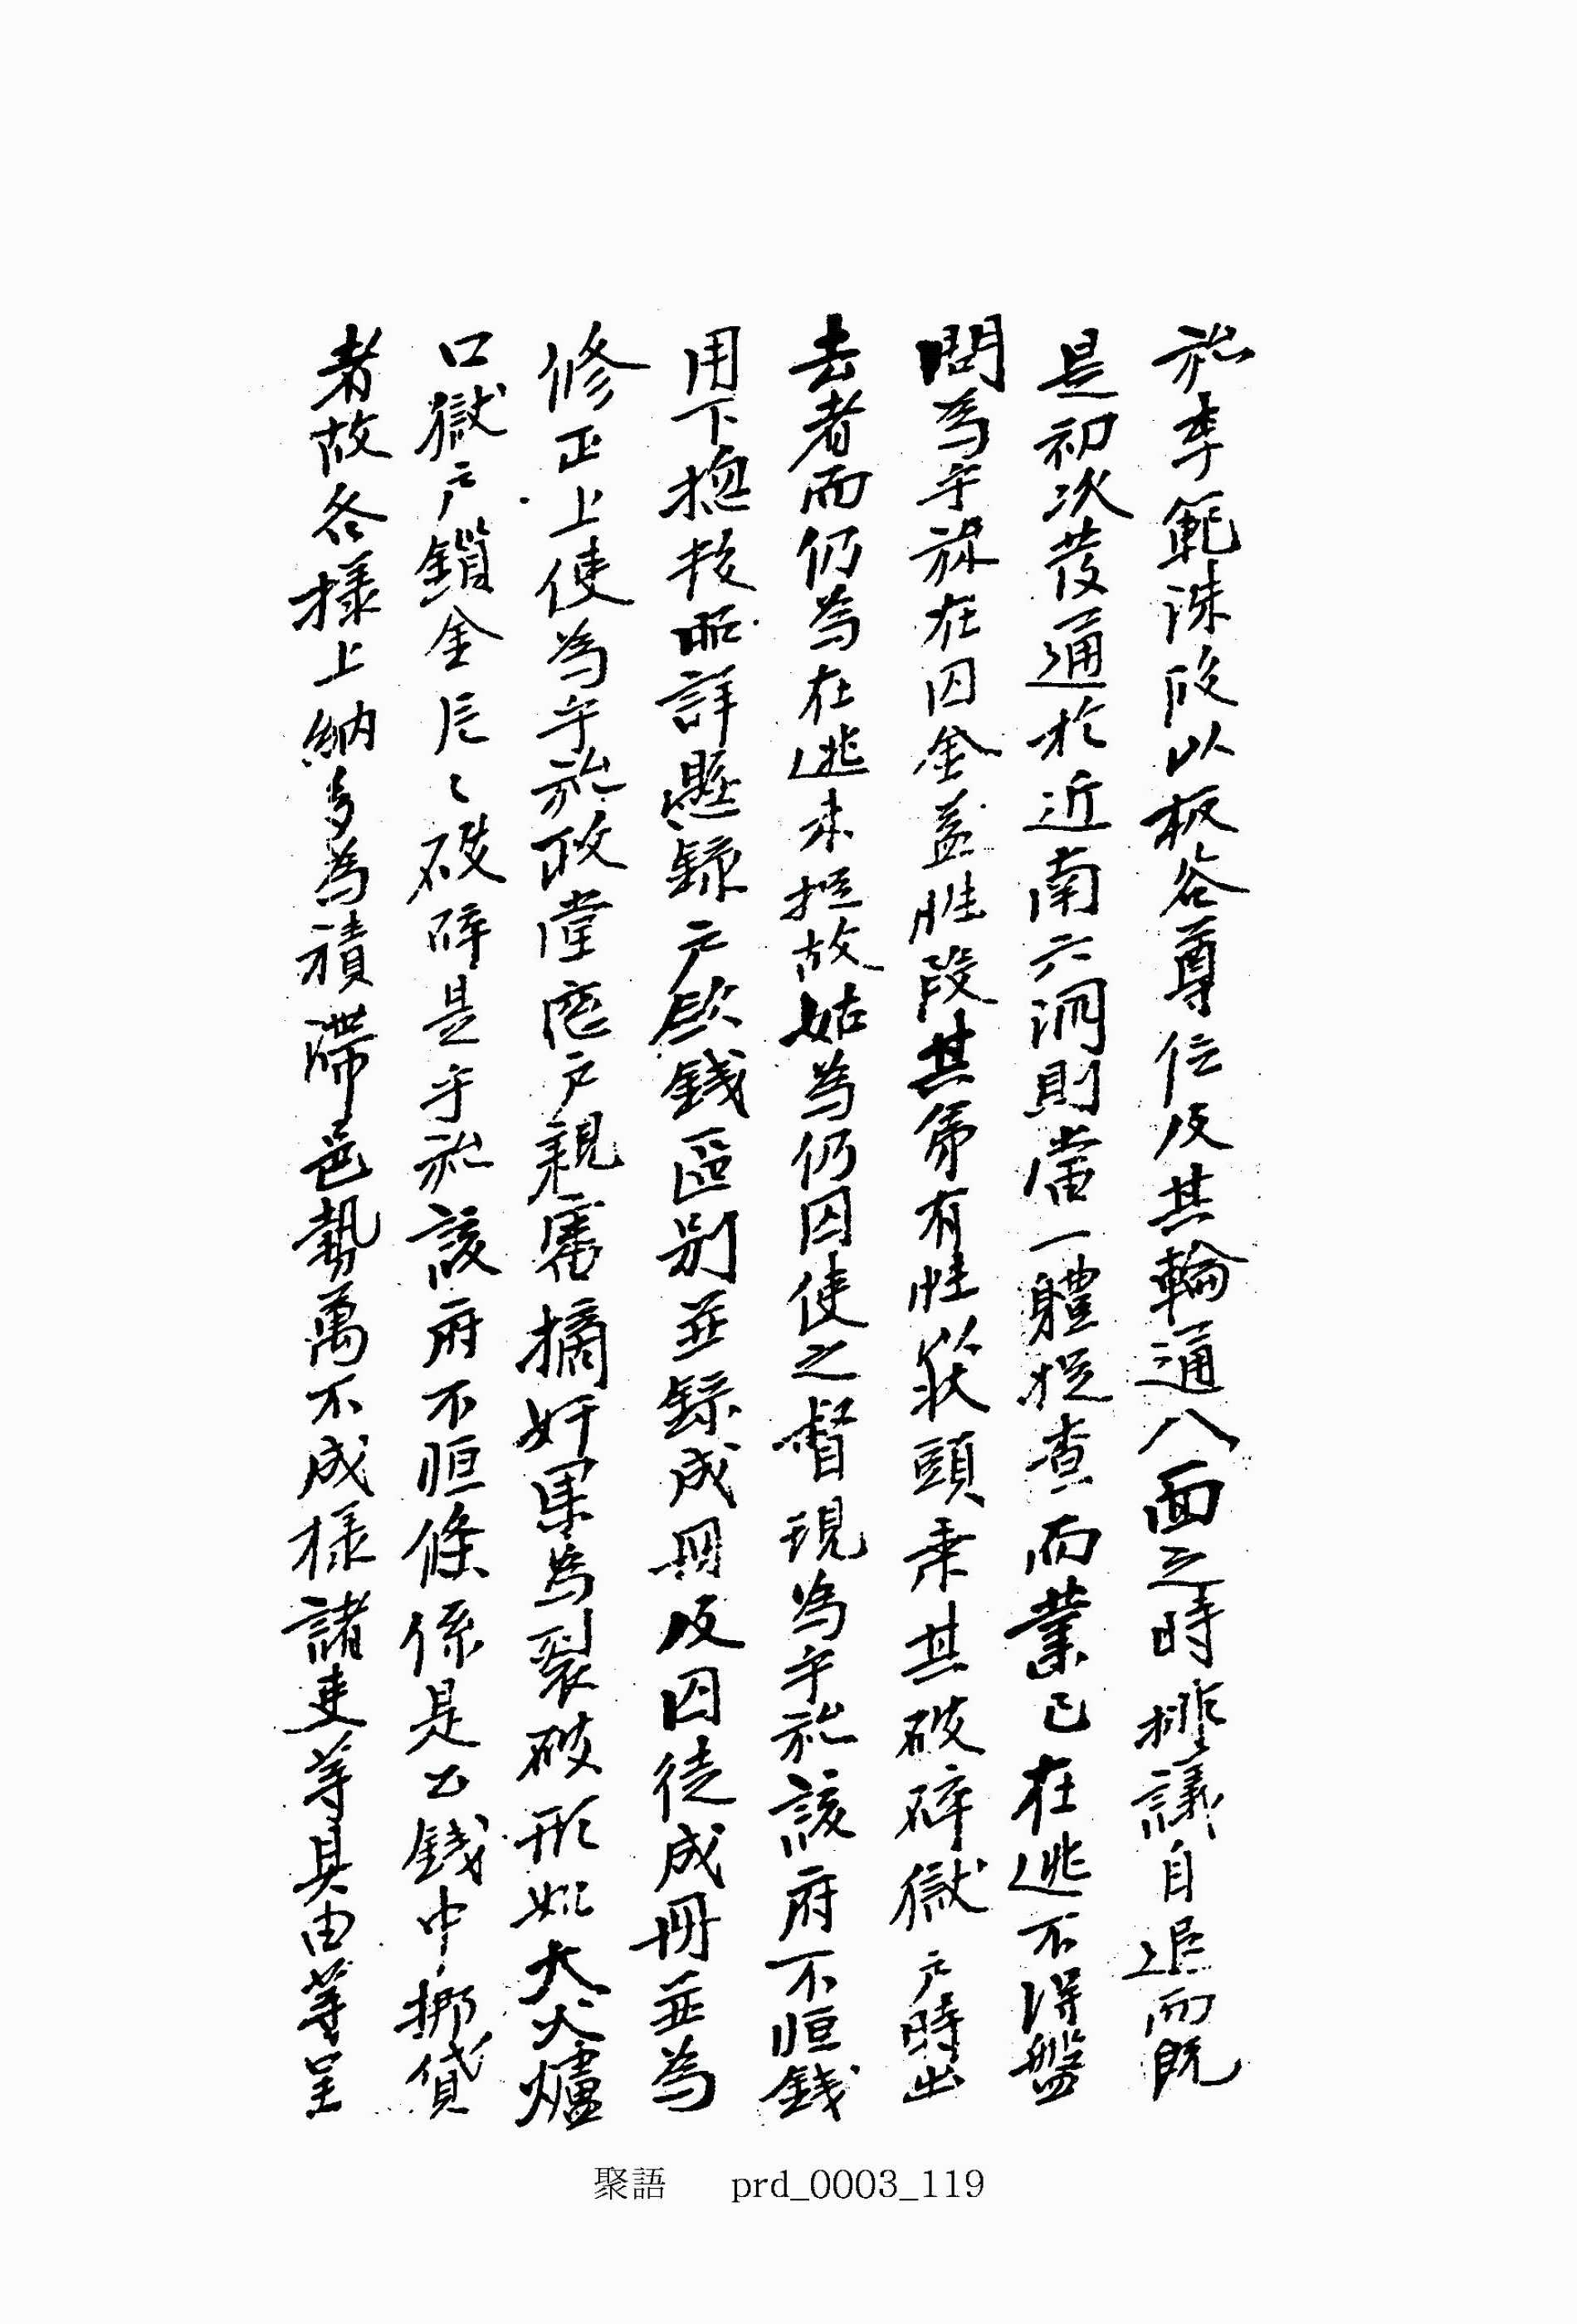 旀李範洙段以板谷尊位及其輪通八面之時排議自退而既
是初次發通於近南六洞則當一軆捉査而業已在逃不得盤
問爲乎旀在囚金益胜段其弟有胜狀頭乘其破碎獄戶時出
去者而仍爲在逃未捉故姑爲仍囚使之督現爲乎旀該府不恒錢
用下摠数昭詳懸錄戶歛錢區別並錄成冊及囚徒成冊並爲
修正上使爲乎旀政堂窓戶親審摘奸果爲裂破形如大火爐
口獄戶鎖金片〻破碎是乎旀該府不恒條係是公錢中挪貸
者故各樣上納多爲積滯邑勢萬不成樣諸吏等具由等呈
聚語 prd_0003_119